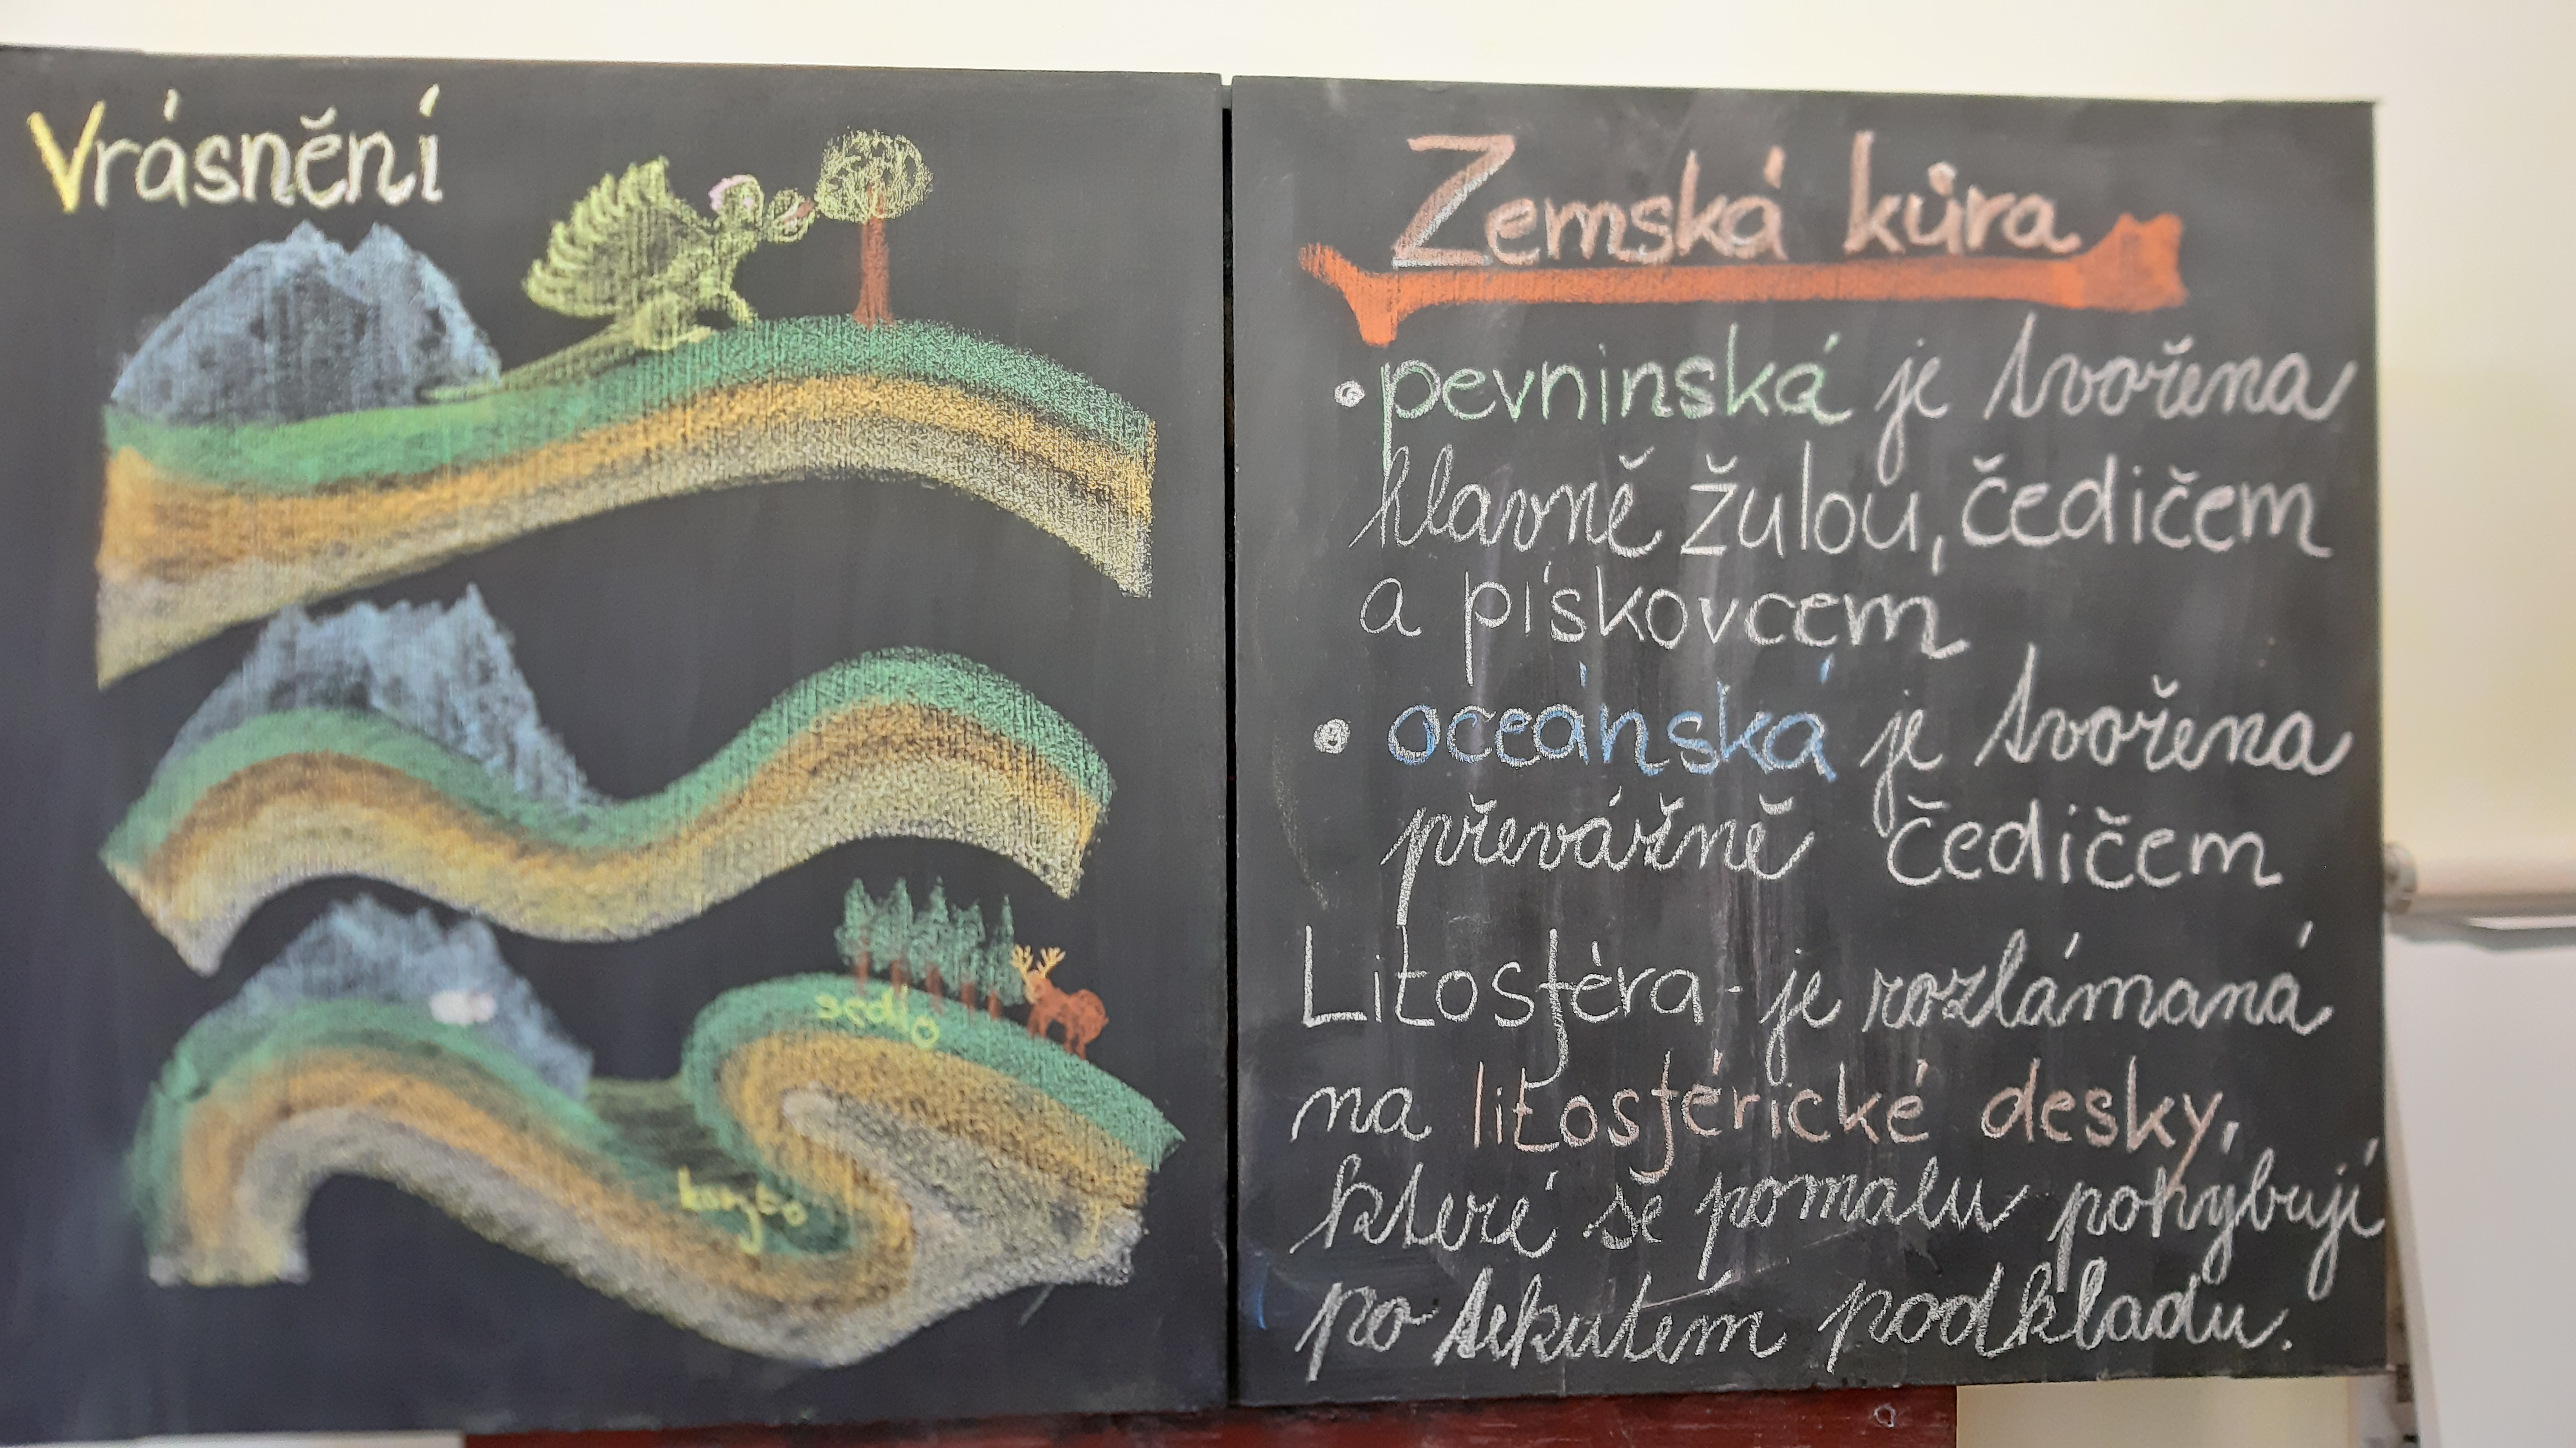 Vrásnění
sedlo
koryto
Zemská kůra
• pevninská je tvořena
hlavně žulou, čedičem
a pískovcem
• oceánská je tvořena
převážně čedičem
Litosféra - je rozlámaná
na litosférické desky,
které se pomalu pohybují
po tekutém podkladu.